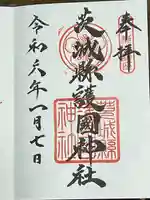 奉拝
茨城縣護國神社
令和六年一月七日
茨城縣
護國
神社